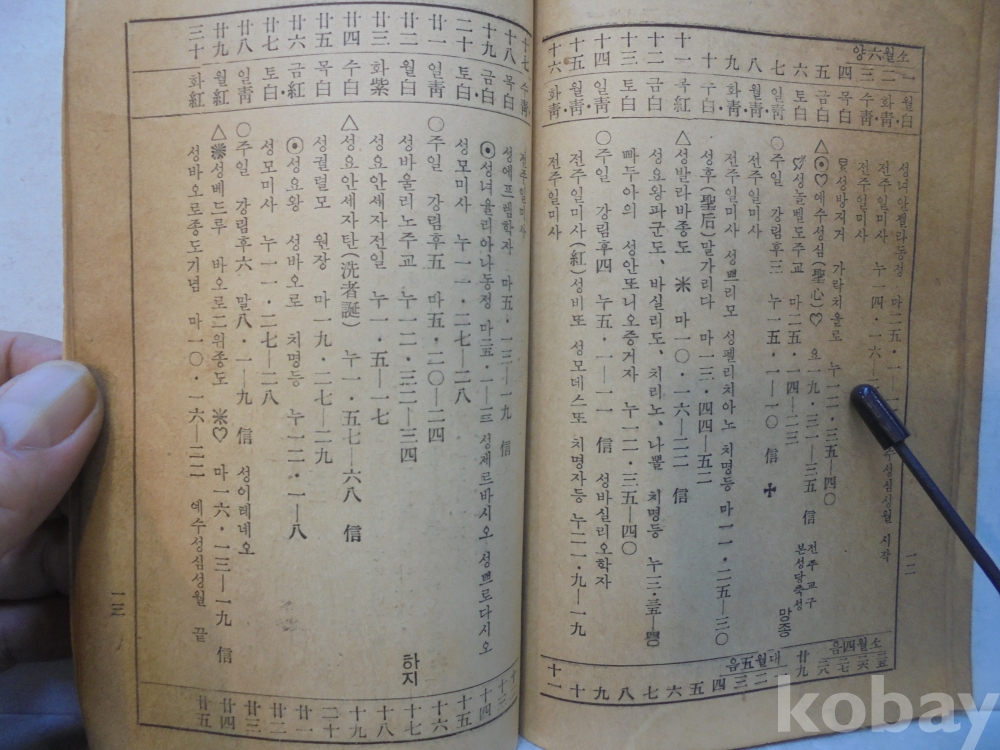 양六월소
一 월白 성녀안젤라동정 마二五·一—一 수성심성월 시작
二 화靑· 전주일미사 누一四·一六—
三 수靑· 전주일미사
四 목白 성방지거 가락치올로 누一二·三五—四〇
五 금白 △⦿♡예수성심(聖心)♡ 요一九·三一—三五 信 전주교구 본성당축성
六 토白 성놀벨도주교 마二五·一四—二三
七 일靑 〇주일 강림후三 누一五·一—一〇 信 ✠ 망종
八 월靑· 전주일미사
九 화靑· 전주일미사 성쁘리모 성펠리치아노 치명등 마一一·二五—三〇
十 수白 성후(聖后)말가리다 마一三·四四—五二
十一 목紅 △성발라바종도 ※ 마一〇·一六—二二 信
十二 금白 성요왕파군도、바실리도、치리노、나뽈 치명등
十三 토白 빠두아의 성안또니오증거자 누一二·三五—四〇
十四 일靑 〇주일 강림후四 누五·一—一一 信 성바실리오학자
十五 월靑· 전주일미사(紅)성비또 성모데스또 치명자등 누二一·九—一九
十六 화靑· 전주일미사
음四월소
음五월대
廿九 一 二 三 四 五 六 七 八 九 十 十一
一二
十七 수靑· 전주일미사
十八 목白 성에프렘학자 마五·一三—一九 信
十九 금白· ⦿성녀율리아나동정 마二五·一—一三 성제르바시오 성쁘로다시오
二十 토白 성모미사 누一一·二七—二八
廿一 일靑 〇주일 강림후五 마五·二〇—二四
廿二 월白 성바울리노주교 누一二·三二—三四 하지
廿三 화紫 성요안세자전일 누一·五—一七
廿四 수白 △성요안세자탄(洗者誕) 누一·五七—六八 信
廿五 목白 성귈렬모 원장 마一九·二七—二九
廿六 금紅 ⦿성요왕 성바오로 치명등 누一二·一—八
廿七 토白 성모미사 누一一·二七—二八
廿八 일靑 〇주일 강림후六 말八·一—九 信 성이레네오
廿九 월紅 △※성베드루 바오로二위종도 ※♡ 마一六·一三—一九 信
三十 화紅 성바오로종도기념 마一〇·一六—二二 예수성심성월 끝
十四 十五 十六 十七 十八 十九 二十 廿一 廿二 廿三 廿四 廿五
一三
kobay